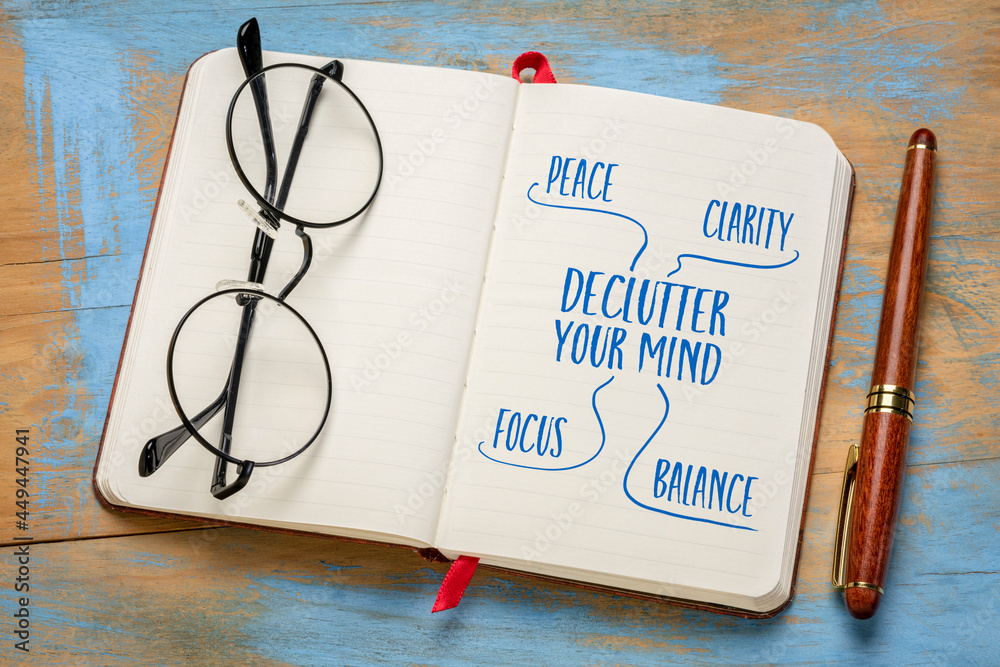 PEACE
CLARITY
DECLUTTER
YOUR MIND
FOCUS
BALANCE
Adobe Stock | #449447941